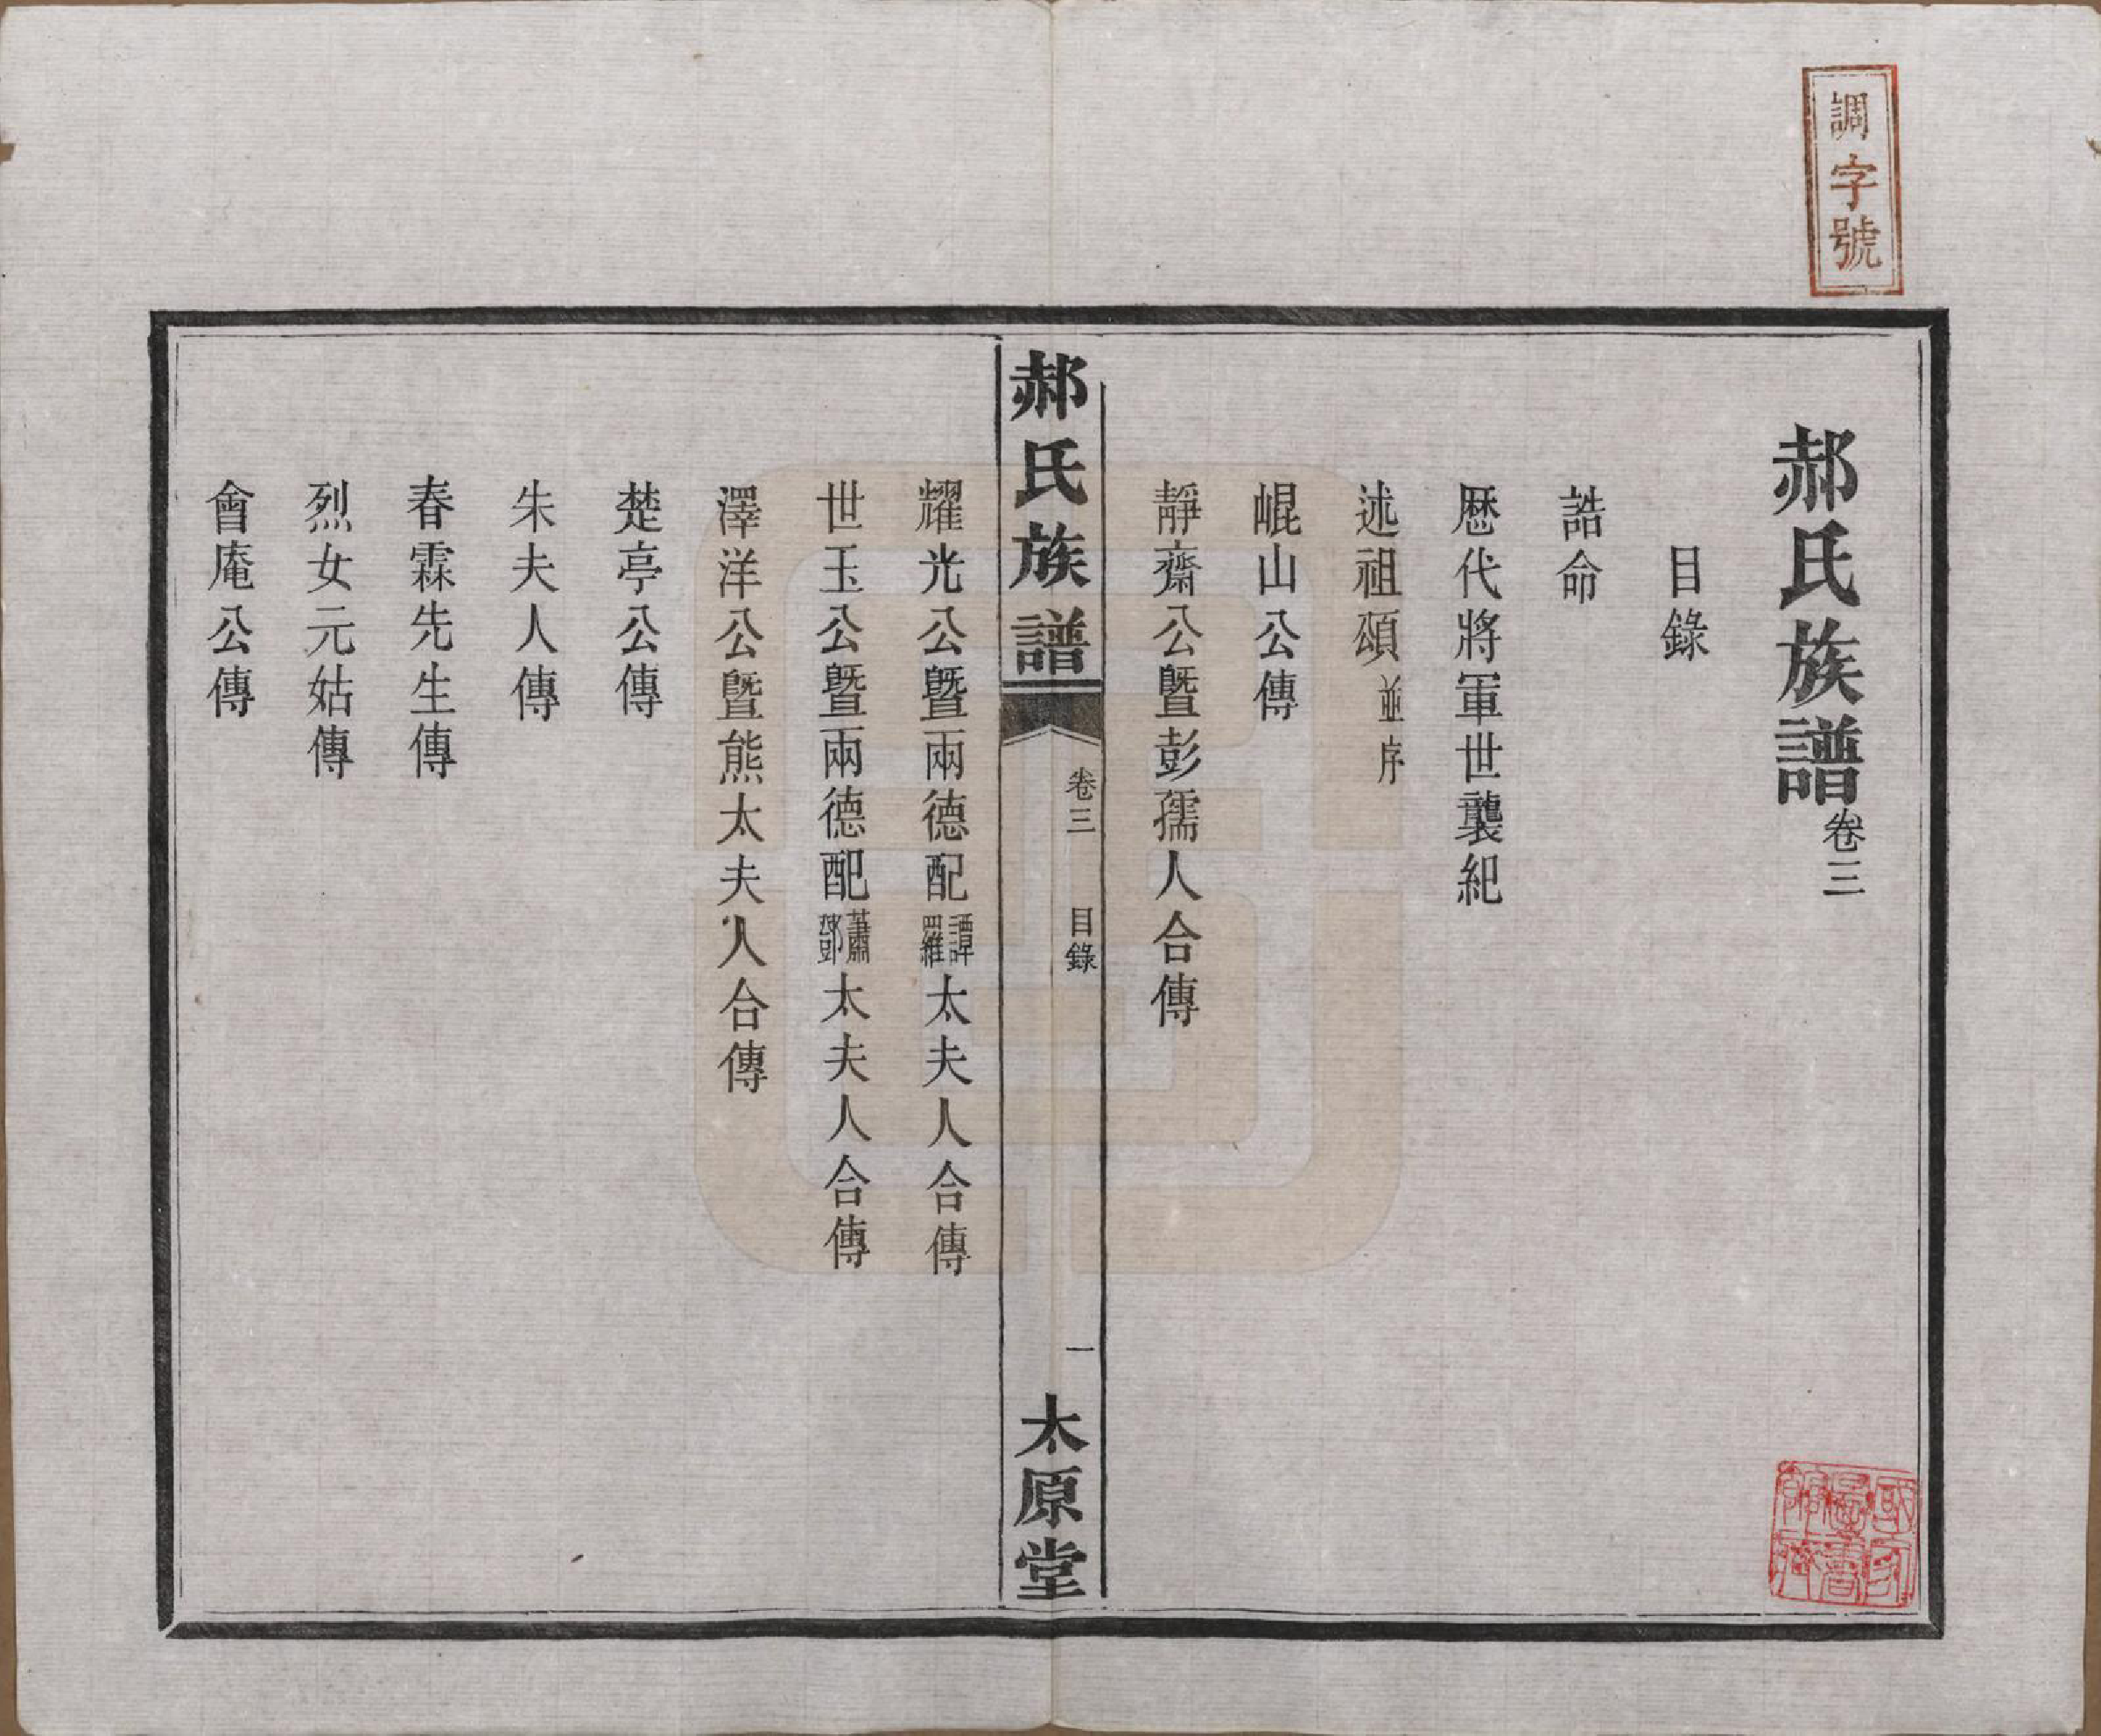 調字號
郝氏族譜卷三
目錄
誥命
歷代將軍世襲紀
述祖頌並序
崐山公傳
靜齋公暨彭孺人合傳
郝氏族譜
卷三 目錄 一
太原堂
耀光公暨兩德配譚羅太夫人合傳
世玉公暨兩德配蕭鄧太夫人合傳
澤洋公暨熊太夫人合傳
楚亭公傳
朱夫人傳
春霖先生傳
烈女元姑傳
會庵公傳